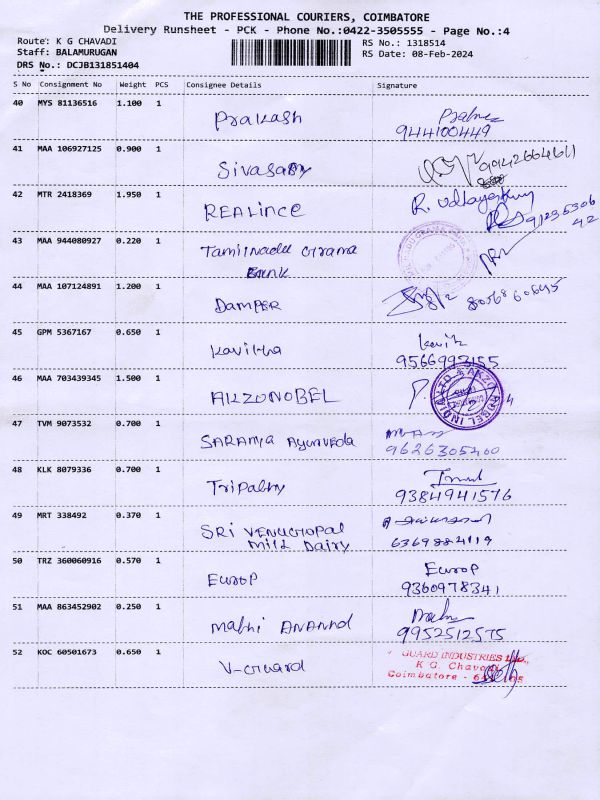 THE PROFESSIONAL COURIERS, COIMBATORE
Delivery Runsheet - PCK - Phone No.:0422-3505555 - Page No.:4
Route: K G CHAVADI
RS No.: 1318514
Staff: BALAMURUGAN
RS Date: 08-Feb-2024
DRS No.: DCJB131851404
S No Consignment No Weight PCS Consignee Details Signature
40 MYS 81136516 1.100 1 Prakash
944100449
41 MAA 106927125 0.900 1 9942664611
42 MTR 2418369 1.950 1 REALince R. Udhayakumar
43 MAA 944080927 0.220 1 Tamilnadu Grama
Bank
44 MAA 107124891 1.200 1 DAMPER
45 GPM 5367167 0.650 1 Kavitha
9566993155
46 MAA 703439345 1.500 1 AKZONOBEL
47 TVM 9073532 0.700 1 SARANYA Ayurveda
9626305400
48 KLK 8079336 0.700 1
9384941576
49 MRT 338492 0.370 1 SRI VENUGHOPAL
Mild Dairy
6369884119
50 TRZ 360060916 0.570 1 EUROP Europ
9360978341
51 MAA 863452902 0.250 1 ANANND
9952512575
52 KOC 60501673 0.650 1 V-Guard GUARD INDUSTRIES LTD.,
K G. Chavadi
Coimbatore -